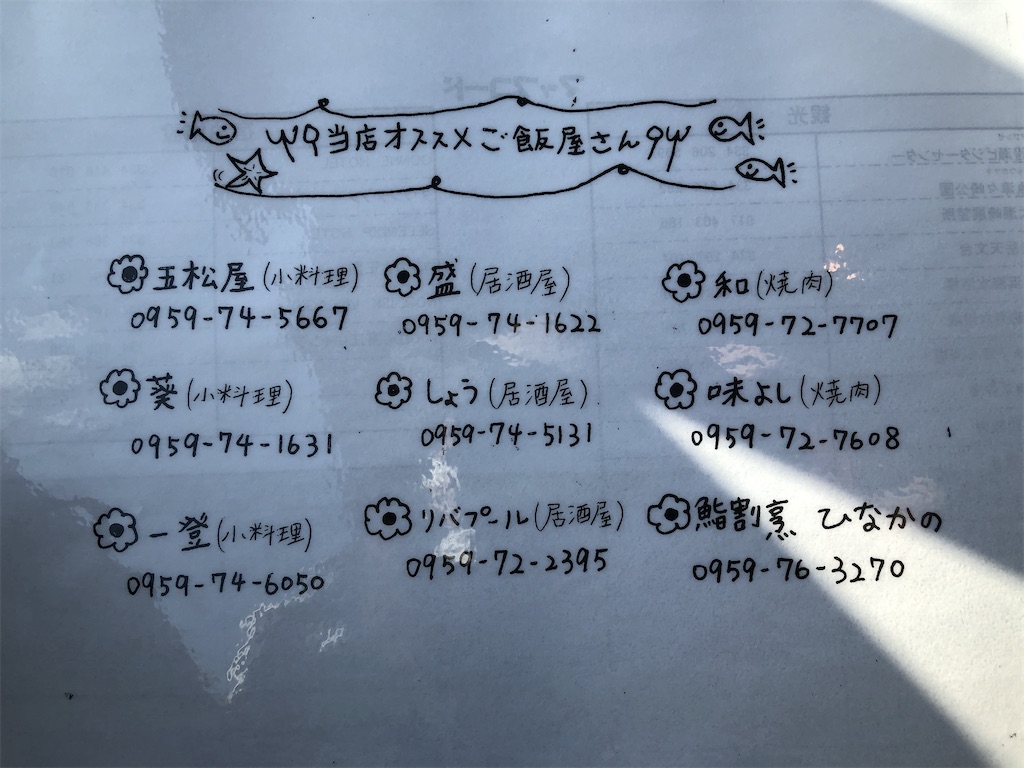 当店オススメご飯屋さん
五松屋(小料理)
0959-74-5667
盛(居酒屋)
0959-74-1622
和(焼肉)
0959-72-7707
葵(小料理)
0959-74-1631
しょう(居酒屋)
0959-74-5131
味よし(焼肉)
0959-72-7608
一登(小料理)
0959-74-6050
リバプール(居酒屋)
0959-72-2395
鮨割烹 ひなかの
0959-76-3270
マップコード
観光